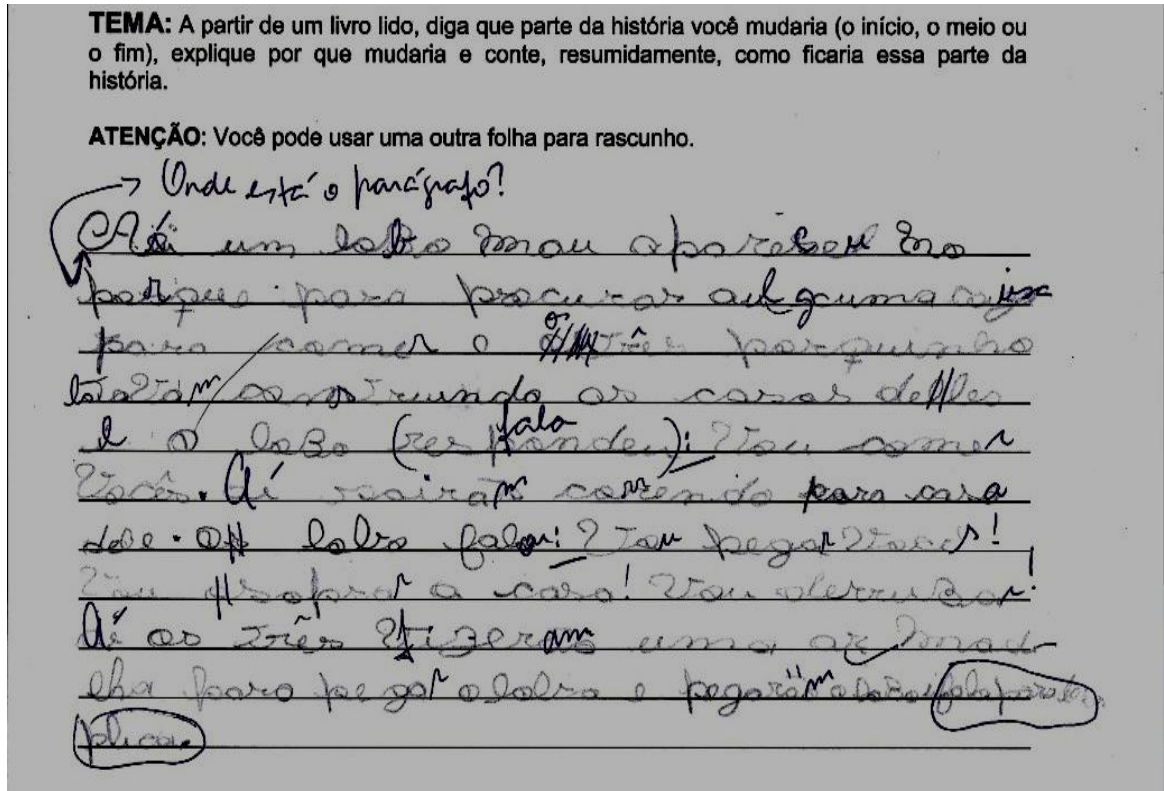 TEMA: A partir de um livro lido, diga que parte da história você mudaria (o início, o meio ou
o fim), explique por que mudaria e conte, resumidamente, como ficaria essa parte da
história.
ATENÇÃO: Você pode usar uma outra folha para rascunho.
Onde está o parágrafo?
Aí um lobo mau apareceu no
parque para procurar alguma
para comer e os três porquinho
construindo as casas deles
e o lobo (responde) fala: Vou comer
Vocês. Aí sairam correndo para casa
dele. O lobo falou: Vou pegar Vocês!
Vou soprar a casa! Vou derrubar!
Aí os três fizeram uma armad-
lha para pegar o lobo e pegaram o lobo fala para